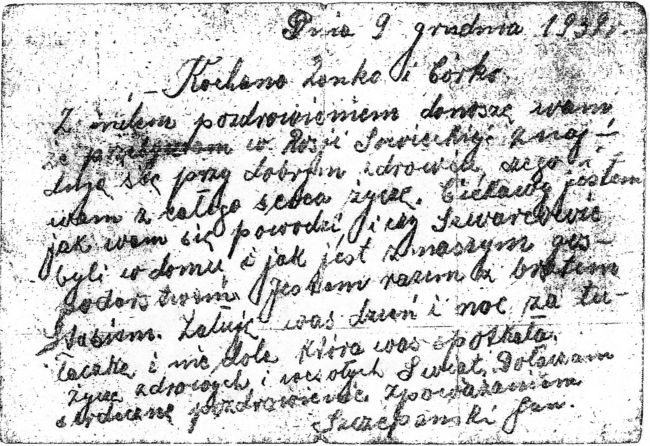 Dnia 9 grudnia 1939 r.
Kochana Żonko i Córko
Z miłem pozdrowieniem donoszę wam
że w Rosji Sowieckiej znaj-
duję się przy dobrym zdrowiu, czego i
wam z całego serca życzę. Ciekawy jestem
jak wam się powodzi i czy
byli w domu i jak jest z naszym gos-
podarstwem. Jestem razem z bratem
Żałuję was dzień i noc za tu-
łaczkę i nie dole która was spotkała.
życzę zdrowych i wesołych Świąt. Dołączam
serdeczne pozdrowienie z poważaniem
Szczepański